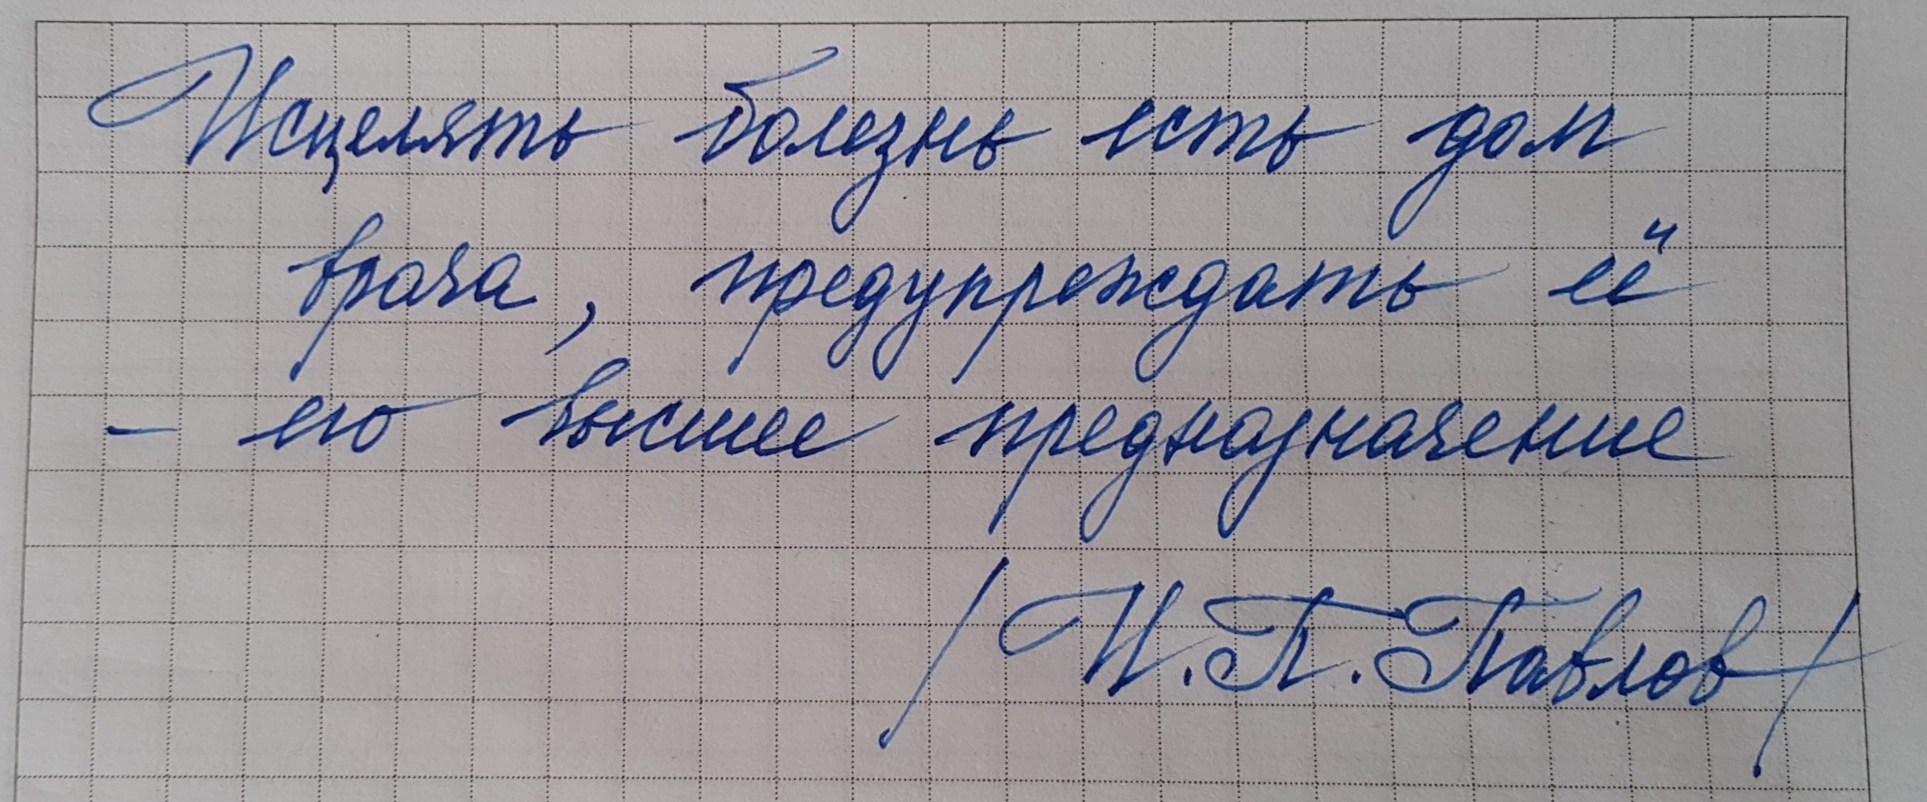 Исцелять болезнь есть дом
врача, предупреждать её
- его высшее предназначение
/И.П.Павлов/